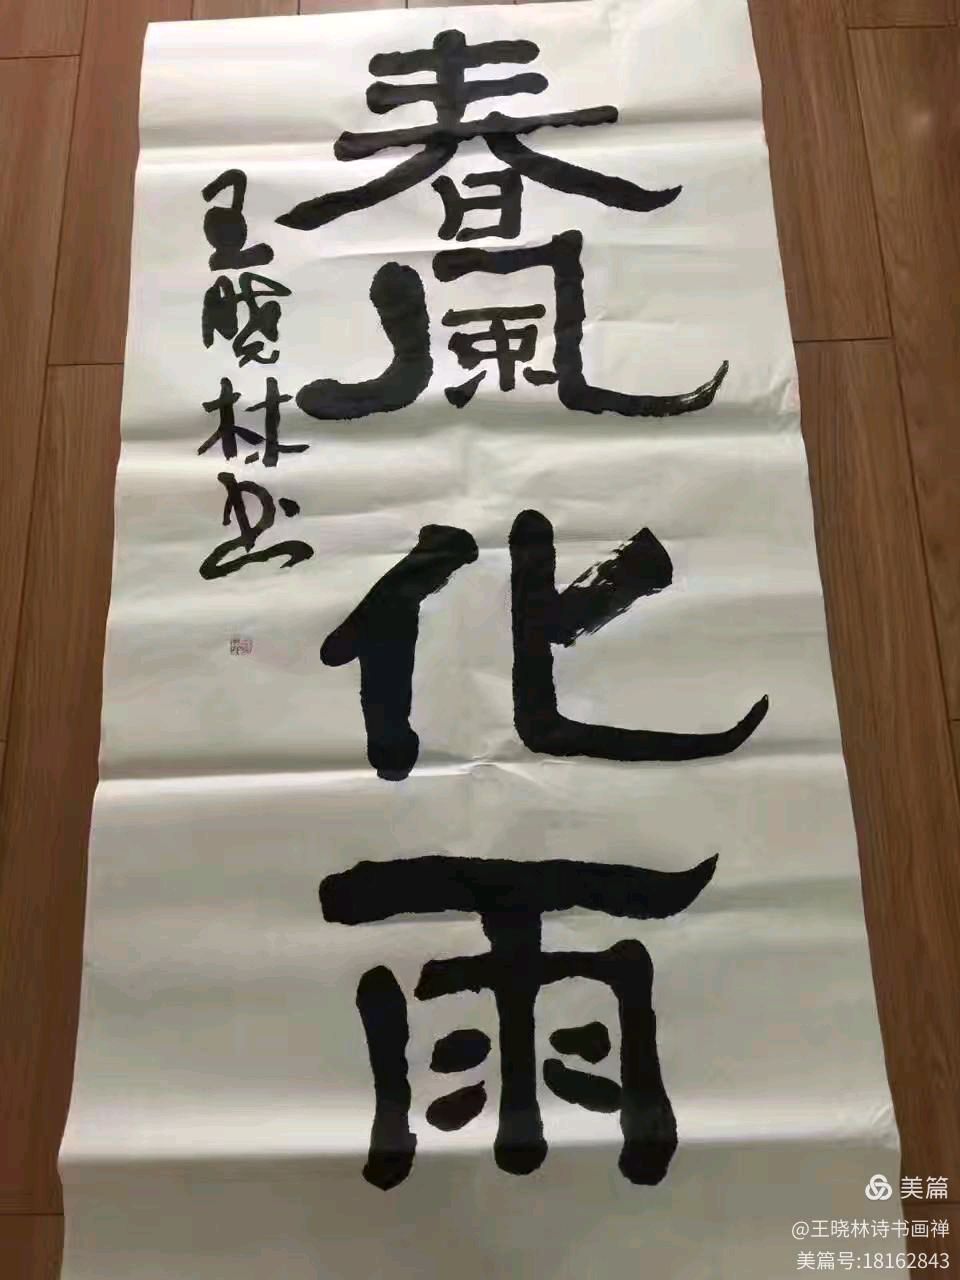 春风化雨
王晓林书
美篇
@王晓林诗书画禅
美篇号:18162843